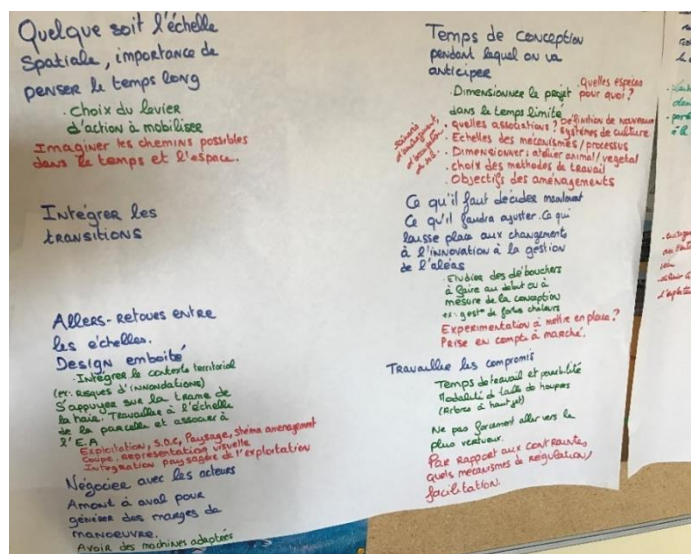 Quelque soit l'échelle
Spatiale, importance de
penser le temps long
. choix du levier
d'action à mobiliser
Imaginer les chemins possibles
dans le temps et l'espace.
Intégrer les
transitions
Allers-retours entre
les échelles.
Design emboité
. Intégrer le contexte territorial
(ex. Risques d'innondations)
S'appuyer sur la trame de
la haie. Travailler à l'échelle
de la parcelle et associer à
l'E.A
Exploitation, S.d.C, Paysage, shéma aménagement
Coupe, représentation visuelle
Intégration paysagère de l'exploitation
Négocier avec les acteurs
Amont à aval pour
générer des marges de
manoeuvre.
Avoir des machines adaptées
Temps de conception
pendant lequel on va
anticiper
. Quelles espèces
pour quoi ?
. Dimensionner le projet
dans le temps limité
. quelles associations ? Définition de nouveaux
systèmes de culture
. Echelles des mécanismes / processus
. Dimensionner : atelier animal / végétal
. choix des méthodes de travail
. Objectifs des aménagements
Ce qu'il faut décider maintenant
Ce qu'il faudra ajuster. Ce qui
laisse place aux changements
à l'innovation à la gestion
de l'aléas
. Etudier des débouchés
à faire au début ou à
mesure de la conception
ex: gest° de fortes chaleurs
Expérimentation à mettre en place ?
Prise en compte du marché.
Travailler les compromis
Temps de travail et pénibilité
Modalité de taille de houpiers
(Arbres à haut jet)
Ne pas forcément aller vers le
plus vertueux.
Par rapport aux contraintes
quels mécanismes de régulation /
facilitation.